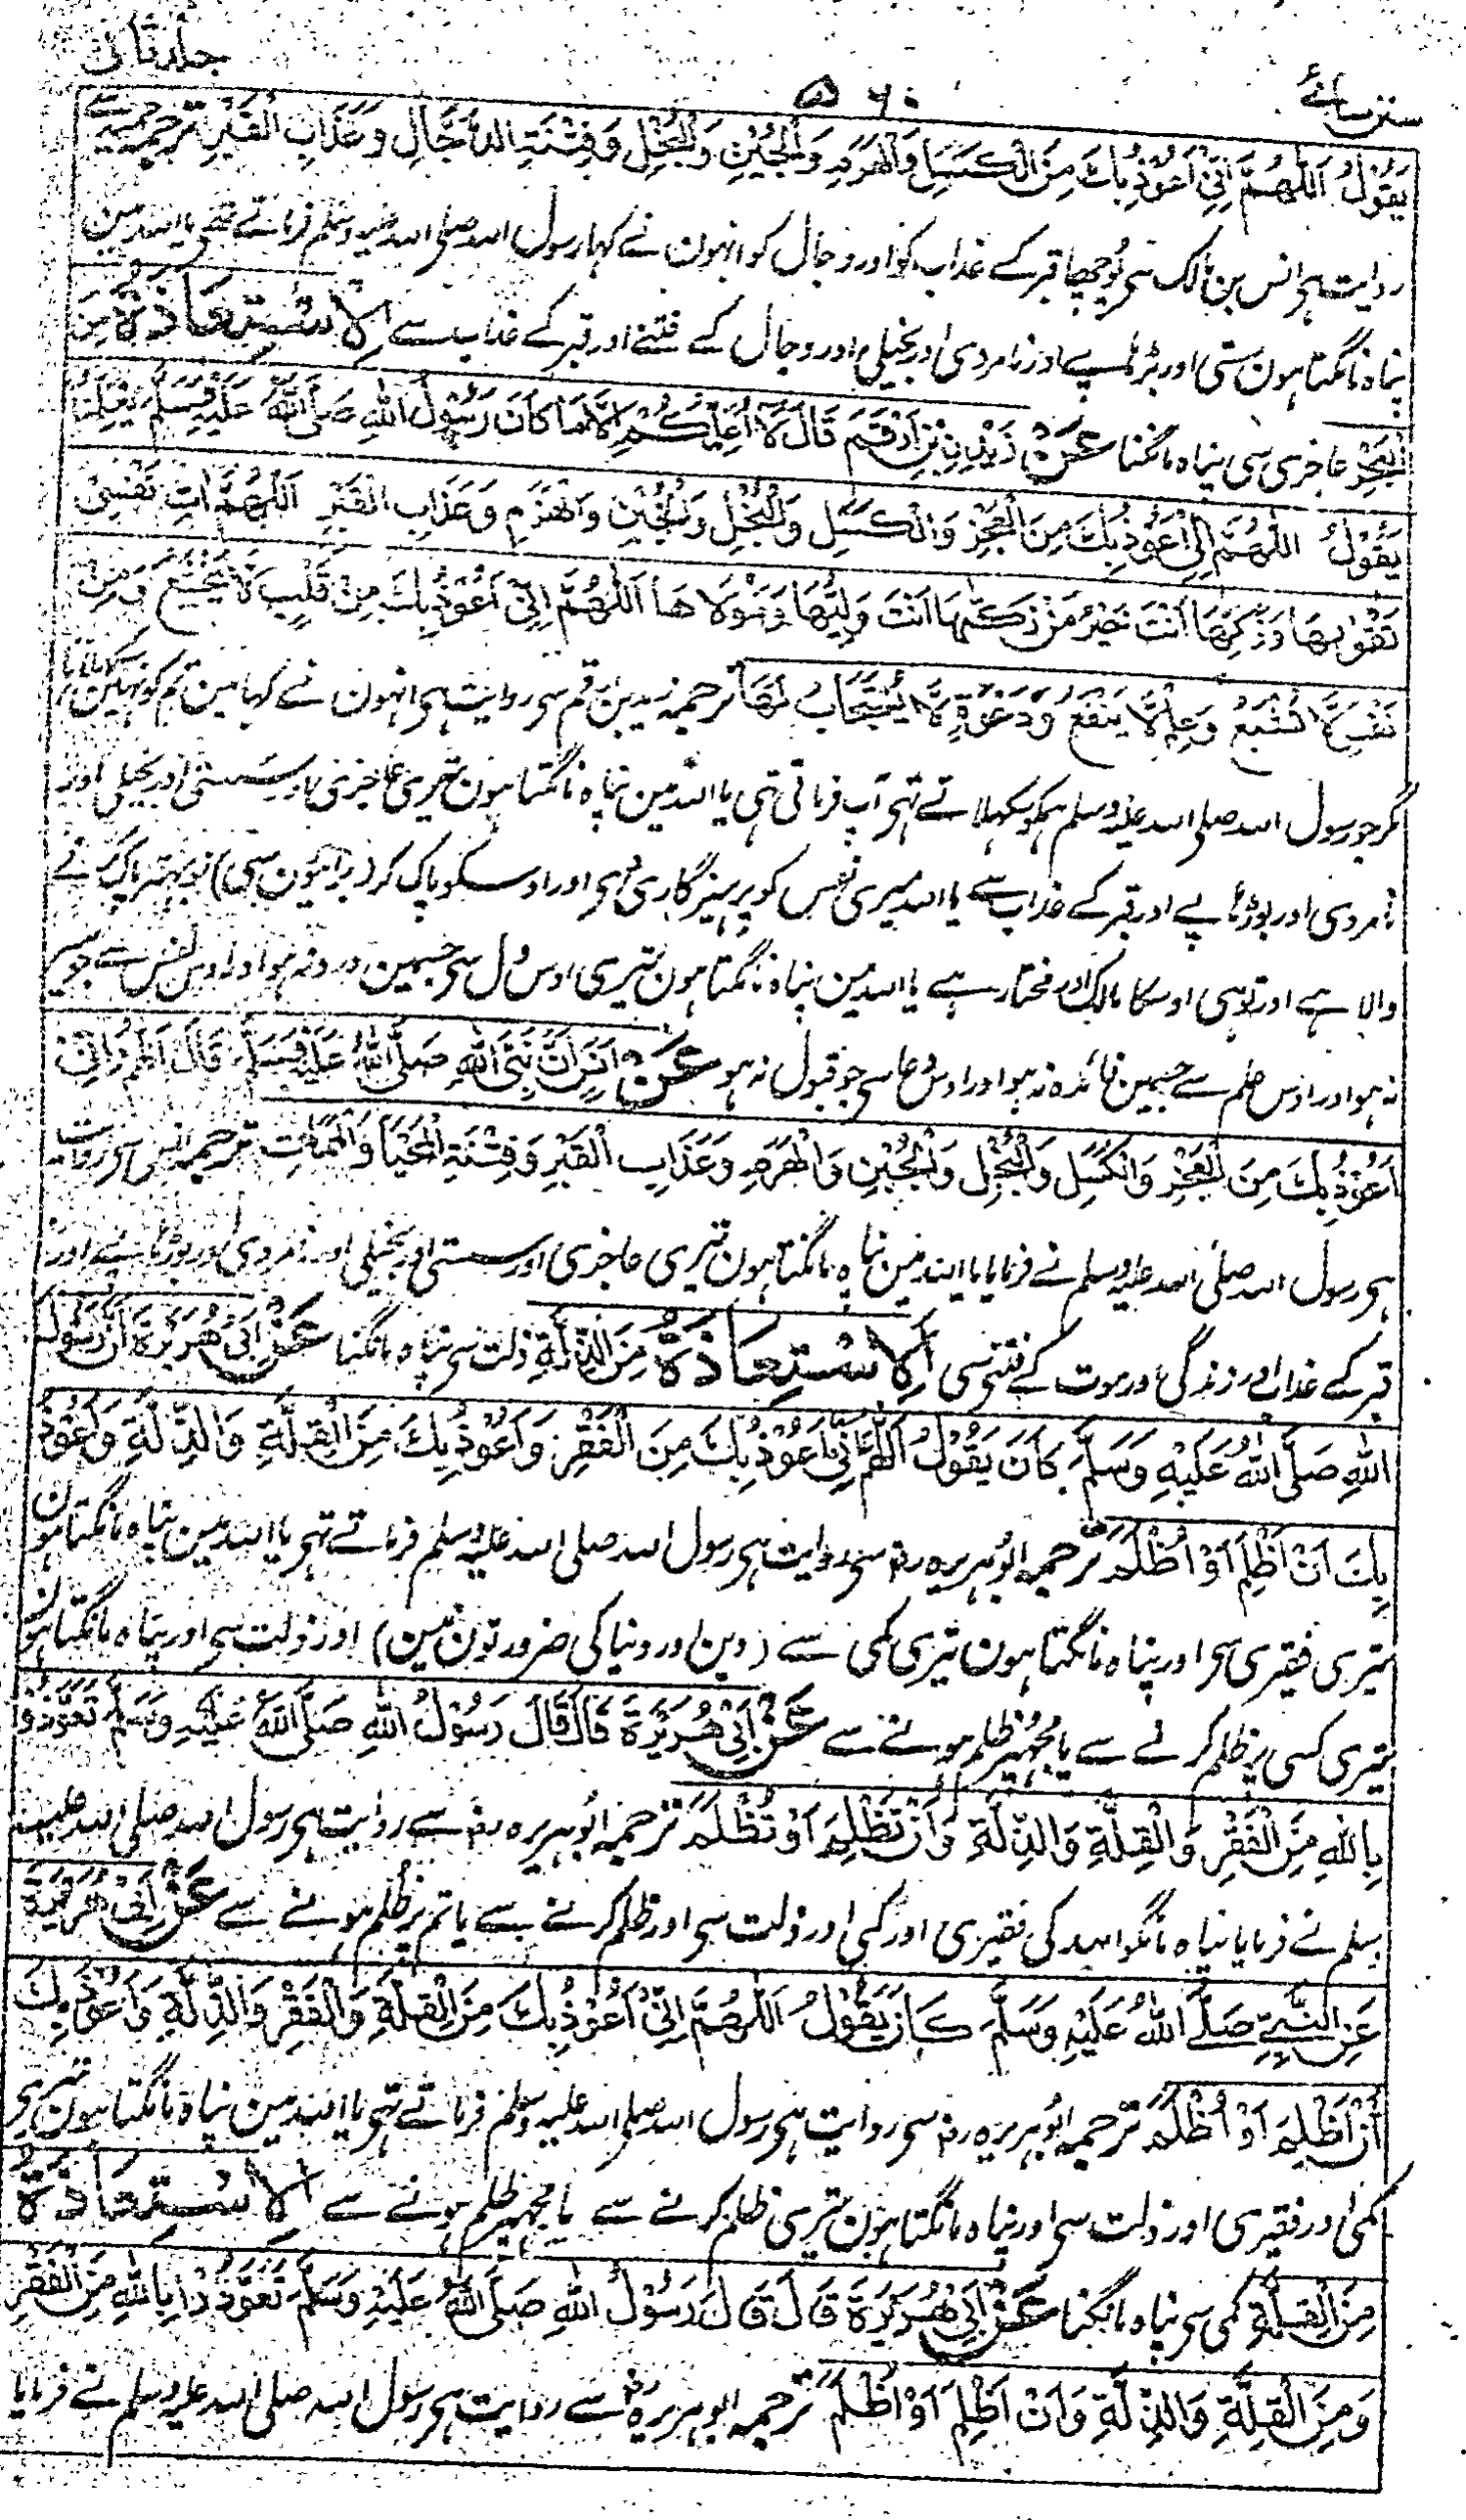 سنن نسائے ۵۶۰ جلد ثانی
يَقُوْلُ اَللّٰهُمَّ اِنِّيْ اَعُوْذُ بِكَ مِنَ الْكَسَلِ وَالْهَرَمِ وَالْجُبْنِ وَالْبُخْلِ وَفِتْنَةِ الدَّجَّالِ وَعَذَابِ الْقَبْرِ ترجمہ
روایت ہی انس بن مالک سی پوچھا قبر کے عذاب کو اور دجال کو انہون نے کہا رسول اللہ صلی اللہ علیہ وسلم فرماتے تھی یا اللہ مین
پناہ مانگتا ہون سستی اور بڑہاپے اور نامردی اور بخیلی اور دجال کے فتنے اور قبر کے عذاب سے اَلْاِسْتِعَاذَةُ مِنَ
الْعَجْزِ عاجزی سی پناہ مانگنا عَنْ زَيْدِ بْنِ اَرْقَمَ قَالَ لَا اُعَلِّمُكُمْ اِلَّا مَا كَانَ رَسُوْلُ اللهِ صَلَّى اللهُ عَلَيْهِ وَسَلَّمَ يُعَلِّمُنَا
يَقُوْلُ اَللّٰهُمَّ اِنِّيْ اَعُوْذُ بِكَ مِنَ الْعَجْزِ وَالْكَسَلِ وَالْبُخْلِ وَالْجُبْنِ وَالْهَرَمِ وَعَذَابِ الْقَبْرِ اَللّٰهُمَّ اٰتِ نَفْسِيْ
تَقْوٰىهَا وَزَكِّهَا اَنْتَ خَيْرُ مَنْ زَكّٰىهَا اَنْتَ وَلِيُّهَا وَمَوْلَاهَا اَللّٰهُمَّ اِنِّيْ اَعُوْذُ بِكَ مِنْ قَلْبٍ لَّا يَخْشَعُ وَمِنْ
نَفْسٍ لَّا تَشْبَعُ وَعِلْمٍ لَّا يَنْفَعُ وَدَعْوَةٍ لَّا يُسْتَجَابُ لَهَا ترجمہ زید بن ارقم سی روایت ہی انہون نے کہا مین تم کو نہین سکہلاتا
مگر جو رسول اللہ صلی اللہ علیہ وسلم ہمکو سکہلاتے تہی آپ فرماتی تہی یا اللہ مین پناہ مانگتا ہون تیری عاجزی اور سستی اور بخیلی اور
نامردی اور بوڑہاپے اور قبر کے عذاب سے یا اللہ میری نفس کو پرہیزگاری دی اور اوسکو پاک کر (برائیون سی) تو بہتر پاک کرنے
والا ہے اور تو ہی اوسکا مالک اور مختار ہے یا اللہ مین پناہ مانگتا ہون تیری اوس دل سی جسمین درد نہ ہو اور اوس نفس سے جو سیر
نہ ہو اور اوس علم سے جسمین فائدہ نہ ہو اور اوس دعا سی جو قبول نہ ہو عَنْ اَنَسٍ اَنَّ نَبِيَّ اللهِ صَلَّى اللهُ عَلَيْهِ وَسَلَّمَ قَالَ اَللّٰهُمَّ اِنِّيْ
اَعُوْذُ بِكَ مِنَ الْعَجْزِ وَالْكَسَلِ وَالْبُخْلِ وَالْجُبْنِ وَالْهَرَمِ وَعَذَابِ الْقَبْرِ وَفِتْنَةِ الْمَحْيَا وَالْمَمَاتِ ترجمہ انس سی روایت
ہی رسول اللہ صلی اللہ علیہ وسلم نے فرمایا یا اللہ مین پناہ مانگتا ہون تیری عاجزی اور سستی اور بخیلی اور نامردی اور بوڑہاپے اور
قبر کے عذاب اور زندگی اور موت کے فتنی سی اَلْاِسْتِعَاذَةُ مِنَ الذِّلَّةِ ذلت سی پناہ مانگنا عَنْ اَبِيْ هُرَيْرَةَ اَنَّ رَسُوْلَ
اللهِ صَلَّى اللهُ عَلَيْهِ وَسَلَّمَ كَانَ يَقُوْلُ اَللّٰهُمَّ اِنِّيْ اَعُوْذُ بِكَ مِنَ الْفَقْرِ وَاَعُوْذُ بِكَ مِنَ الْقِلَّةِ وَالذِّلَّةِ وَاَعُوْذُ
بِكَ اَنْ اَظْلِمَ اَوْ اُظْلَمَ ترجمہ ابوہریرہ رض سی روایت ہی رسول اللہ صلی اللہ علیہ وسلم فرماتے تہی یا اللہ مین پناہ مانگتا ہون
تیری فقیری سی اور پناہ مانگتا ہون تیری کمی سے (دین اور دنیا کی ضرورتون مین) اور ذلت سی اور پناہ مانگتا ہون
تیری کسی پر ظلم کرنے سے یا مجہپر ظلم ہونے سے عَنْ اَبِيْ هُرَيْرَةَ قَالَ قَالَ رَسُوْلُ اللهِ صَلَّى اللهُ عَلَيْهِ وَسَلَّمَ تَعَوَّذُوْا
بِاللهِ مِنَ الْفَقْرِ وَالْقِلَّةِ وَالذِّلَّةِ وَاَنْ تَظْلِمَ اَوْ تُظْلَمَ ترجمہ ابوہریرہ رض سے روایت ہی رسول اللہ صلی اللہ علیہ
وسلم نے فرمایا پناہ مانگو اللہ کی فقیری اور کمی اور ذلت سی اور ظلم کرنے سے یا تم پر ظلم ہونے سے عَنْ اَبِيْ هُرَيْرَةَ
عَنِ النَّبِيِّ صَلَّى اللهُ عَلَيْهِ وَسَلَّمَ كَانَ يَقُوْلُ اَللّٰهُمَّ اِنِّيْ اَعُوْذُ بِكَ مِنَ الْقِلَّةِ وَالْفَقْرِ وَالذِّلَّةِ وَاَعُوْذُ بِكَ
اَنْ اَظْلِمَ اَوْ اُظْلَمَ ترجمہ ابوہریرہ رض سی روایت ہی رسول اللہ صلی اللہ علیہ وسلم فرماتے تہی یا اللہ مین پناہ مانگتا ہون تیری
کمی اور فقیری اور ذلت سی اور پناہ مانگتا ہون تیری ظلم کرنے سے یا مجہپر ظلم ہونے سے اَلْاِسْتِعَاذَةُ
مِنَ الْقِلَّةِ کمی سی پناہ مانگنا عَنْ اَبِيْ هُرَيْرَةَ قَالَ قَالَ رَسُوْلُ اللهِ صَلَّى اللهُ عَلَيْهِ وَسَلَّمَ تَعَوَّذُوْا بِاللهِ مِنَ الْفَقْرِ
وَمِنَ الْقِلَّةِ وَالذِّلَّةِ وَاَنْ اَظْلِمَ اَوْ اُظْلَمَ ترجمہ ابوہریرہ رض سے روایت ہی رسول اللہ صلی اللہ علیہ وسلم نے فرمایا